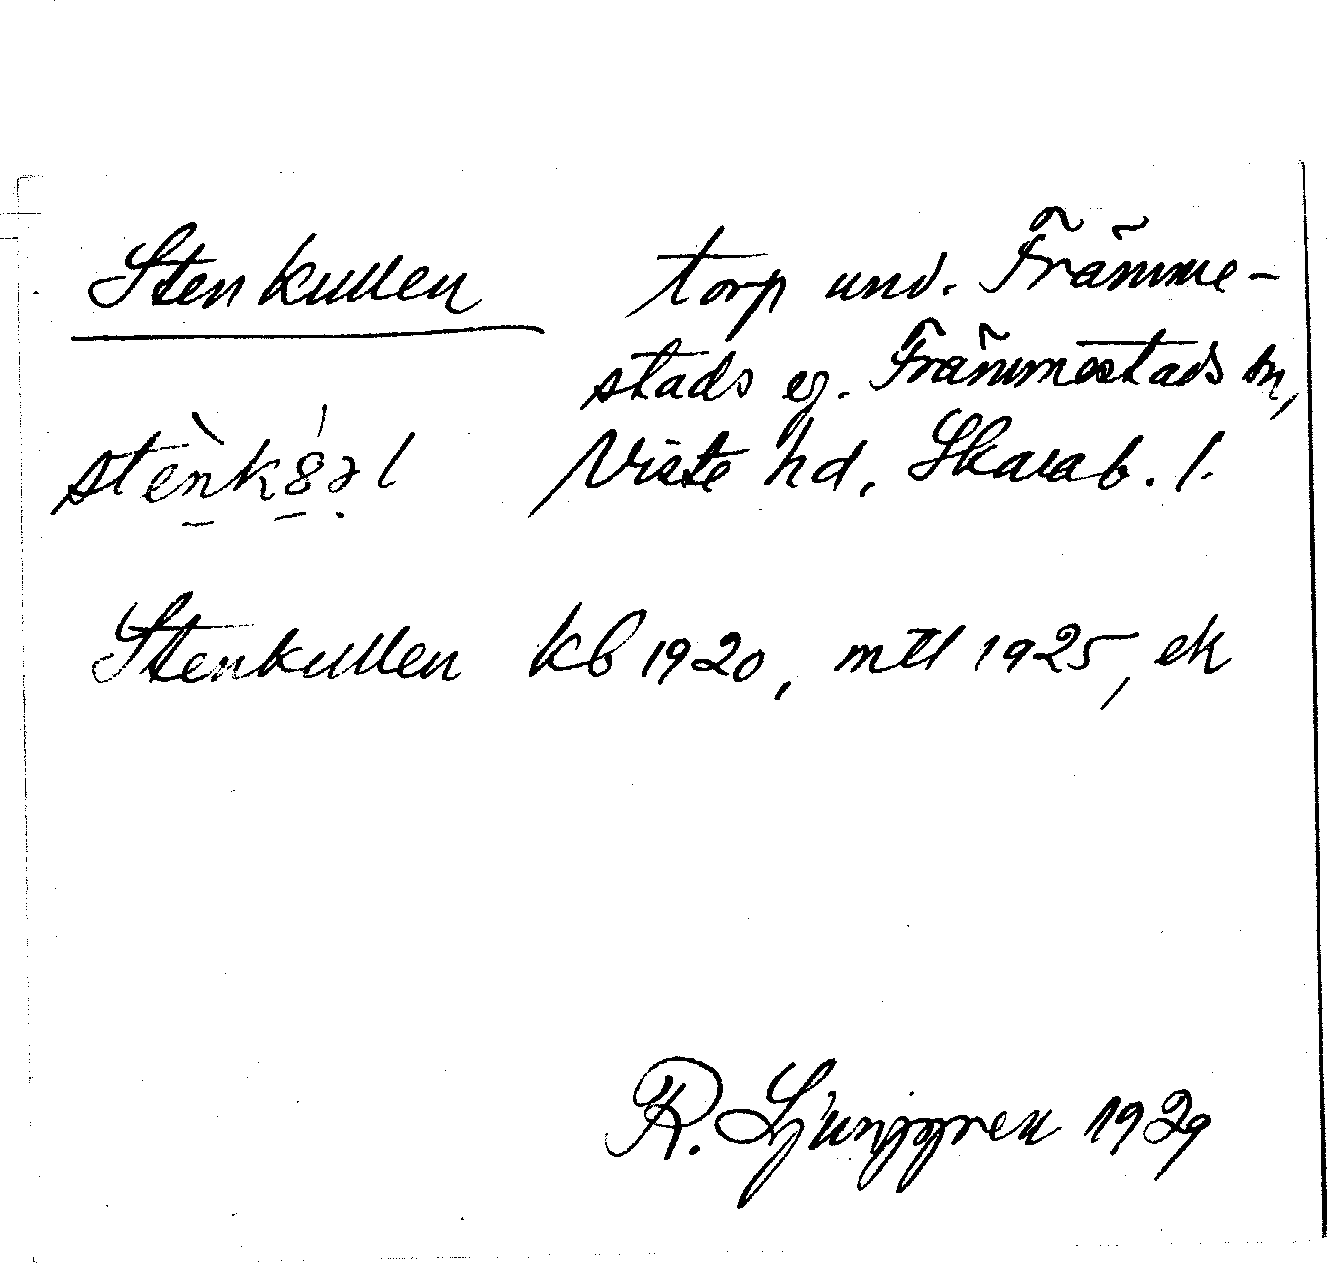 Stenkullen torp und. Främme-
stads eg. Främmestads sn,
Viste hd, Skarab. l.
Stenkullen kb 1920, mtl 1925, ek
R. Ljunggren 1929